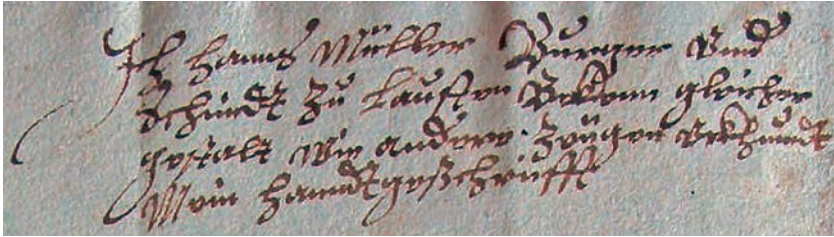 Ich Hanns Müller Burger Vnd
Schmidt zu Lauffen Bekhenn gleicher
gestalt wie andere Zeügen Vrkhundt
Mein Handtgeschrifft